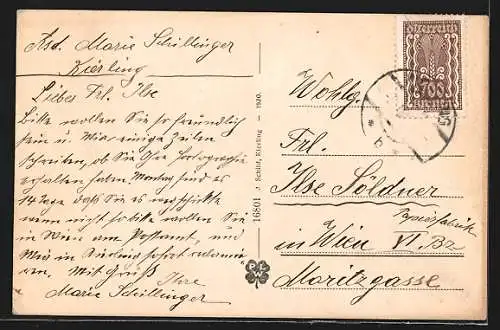 Abs. Marie Schillinger
Kierling
Liebes Frl. Ilse
Bitte wollen Sie so freundlich
sein u. Mir einige Zeilen
Schreiben, ob Sie die Photographie
erhalten haben. Montag sind es
14 Tage daß Sie es
wenn nicht so bitte wollen Sie
in Wien am Postamt, und
Mir in Kierling sofort
Mit Gruß
Ihre
Marie Schillinger
16801 J. Schild, Kierling — 1920.
700
Wohlg.
Frl.
Ilse Söldner
Papierfabrik
in Wien VI. Bz
Moritzgasse